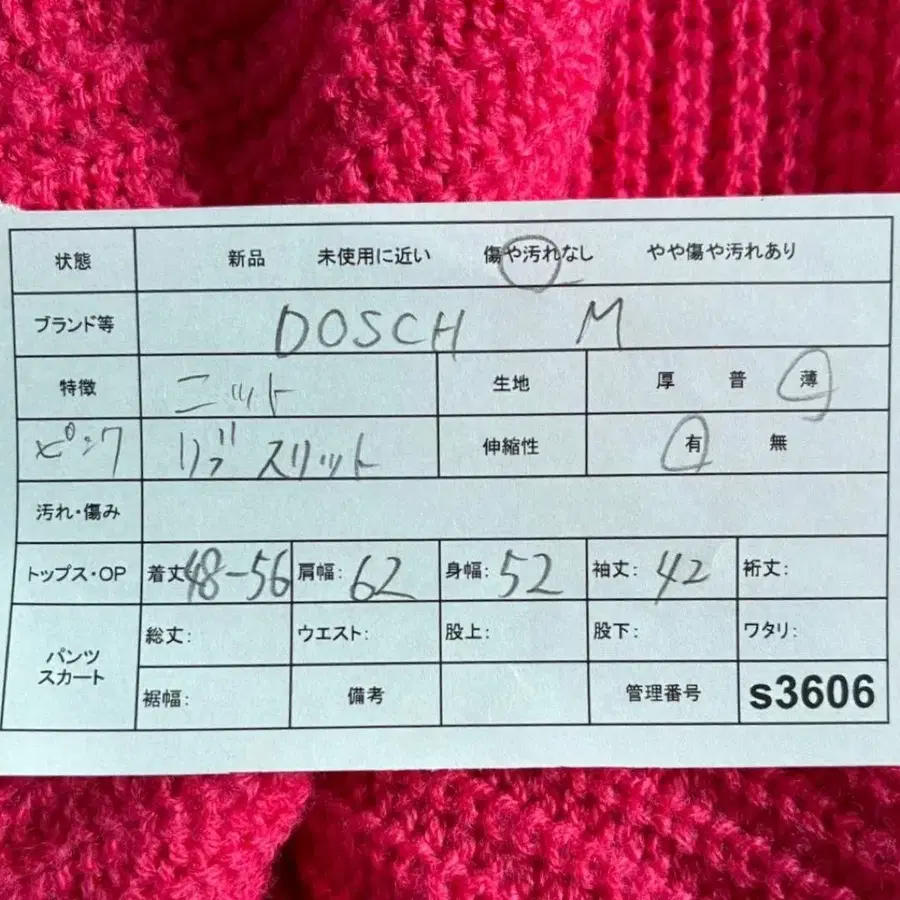 状態 新品 未使用に近い 傷や汚れなし やや傷や汚れあり
ブランド等 DOSCH M
特徴 ニット 生地 厚 普 薄
ピンク リブ スリット 伸縮性 有 無
汚れ・傷み
トップス・OP 着丈 48-56 肩幅: 62 身幅: 52 袖丈: 42 裄丈:
パンツ スカート 総丈: ウエスト: 股上: 股下: ワタリ:
裾幅: 備考 管理番号 s3606